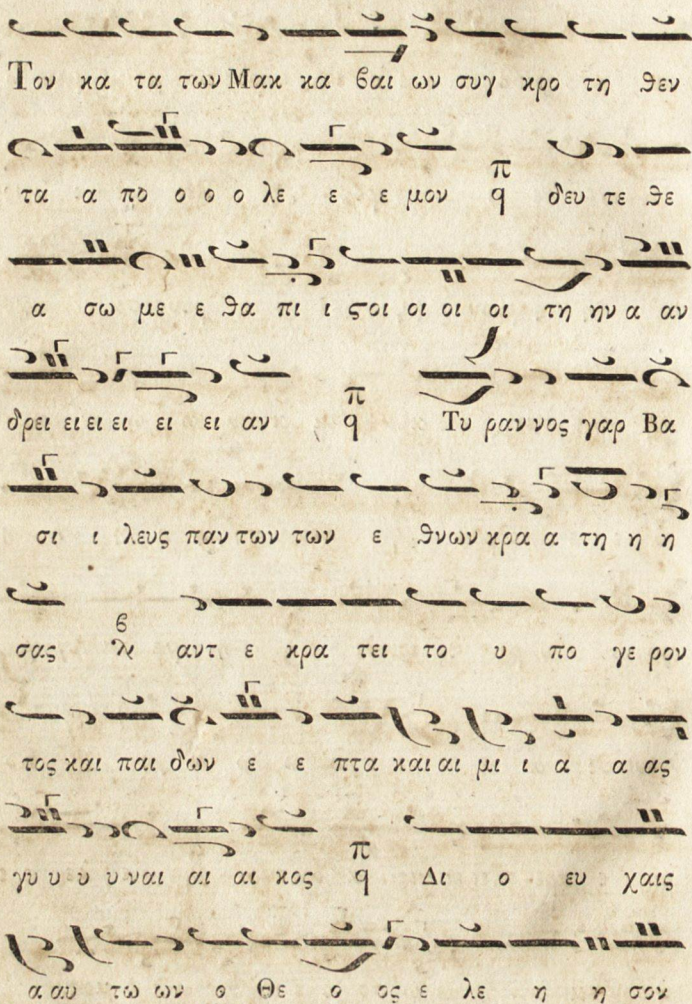 Τον κα τα των Μακ κα βαι ων συγ κρο τη θεν
τα α πο ο ο ο λε ε ε μον π q δευ τε θε
α σω με ε θα πι ι ςοι οι οι οι τη ην α αν
δρει ει ει ει ει ει αν π q Τυ ραν νος γαρ Βα
σι ι λευς παν των των ε θνων κρα α τη η η
σας β αντ ε κρα τει το υ πο γε ρον
τος και παι δων ε ε πτα και αι μι ι α α ας
γυ υ υ υ ναι αι αι κος π q Δι ο ευ χαις
α αυ τω ων ο Θε ο ος ε λε η η σον